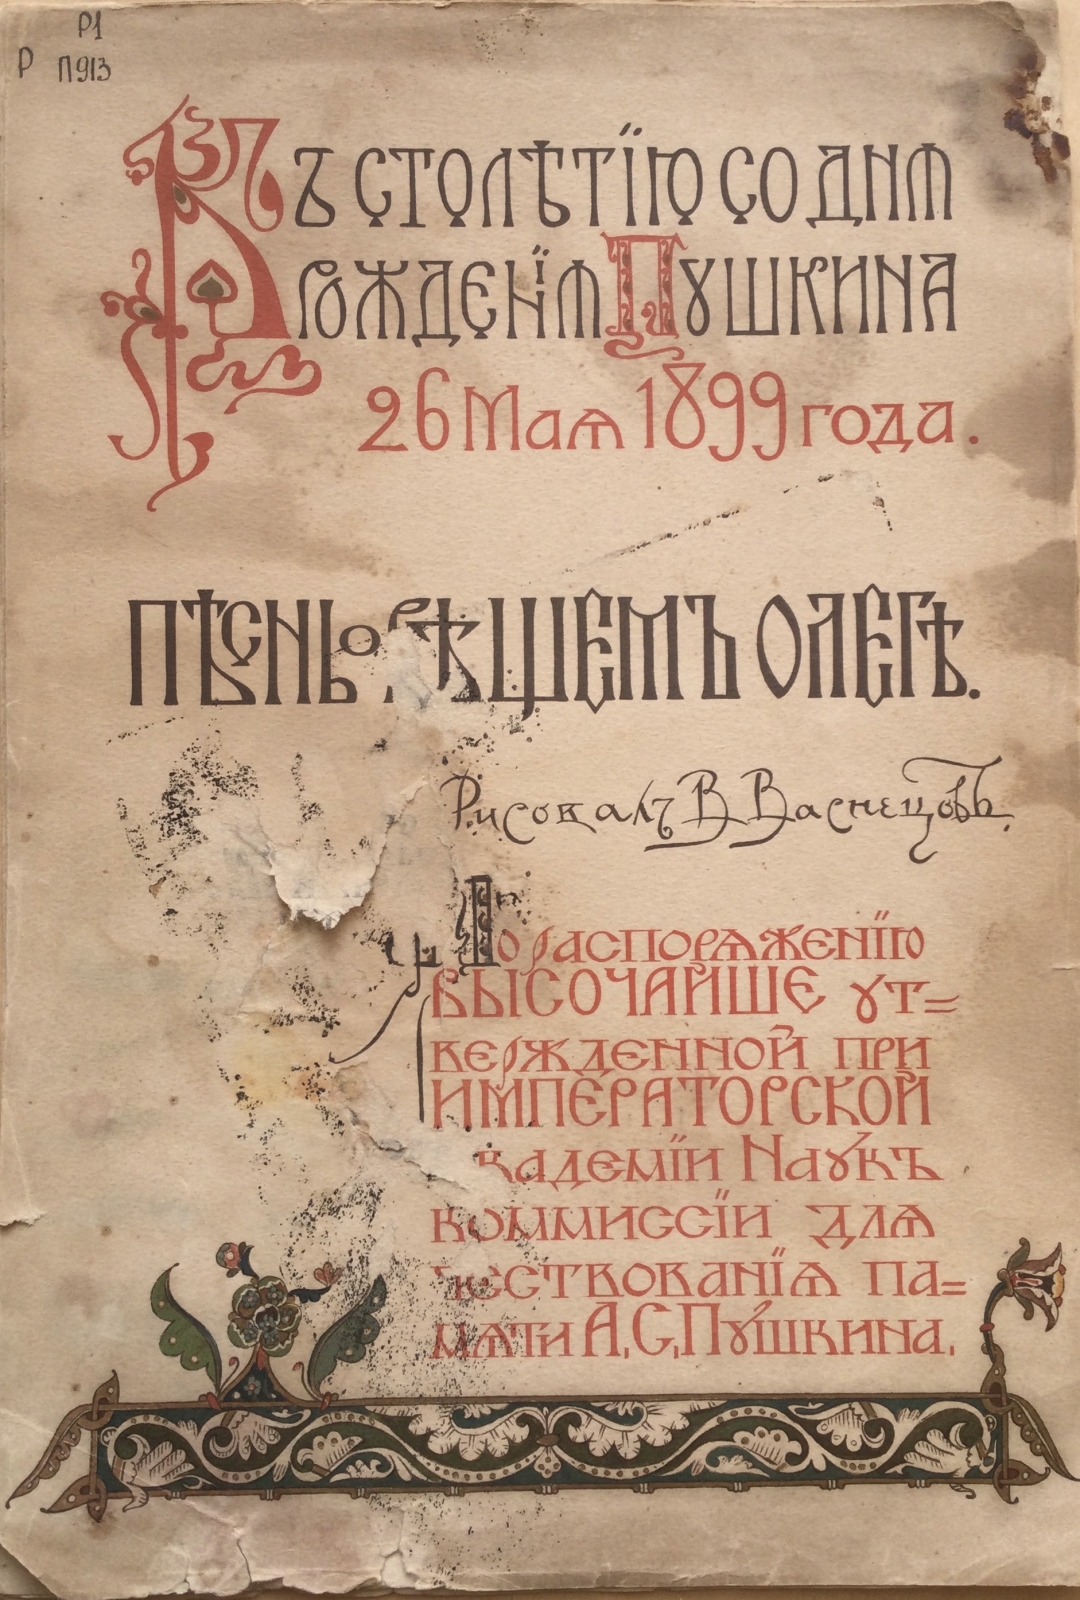 Р1
Р П913
Къ столѣтїю со дня
рожденїя Пушкина
26 Мая 1899 года.
Пѣснь о вѣщемъ Олегѣ.
Рисовалъ В Васнецовъ.
По распоряженїю
высочайше ут=
вержденной при
императорской
академїи Наукъ
коммиссїи для
чествованїя па=
мяти А.С.Пушкина.